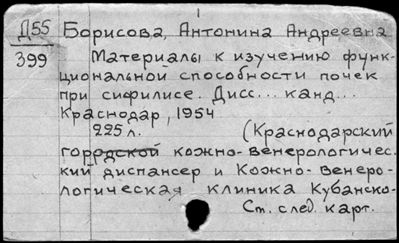 Д55 Борисова, Антонина Андреевна
399 Материалы к изучению функ-
циональной способности почек
при сифилисе. Дисс... канд...
Краснодар, 1954
225 л. (Краснодарский
городской кожно-венерологичес.
кий диспансер и Кожно-венеро-
логическая клиника Кубанско-
См. след. карт.